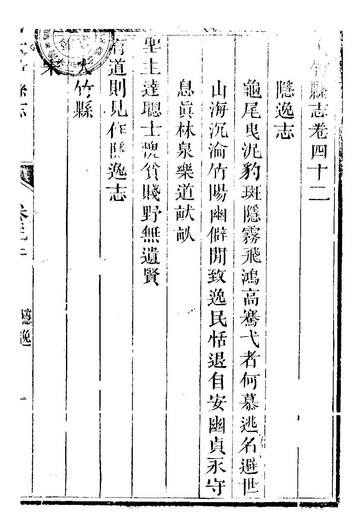 竹縣志卷四十二
隱逸志
龜尾曳泥豹斑隱霧飛鴻高騫弋者何慕逃名避世
山海沉淪竹陽幽僻閒致逸民恬退自安幽貞永守
息眞林泉樂道畎畝
聖主達聰士媿貧賤野無遺賢
有道則見作隱逸志
大竹縣
宋
竹縣志
隱逸
一